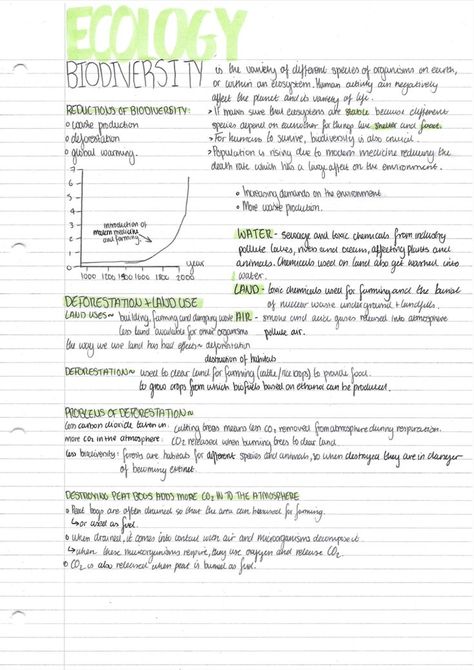 ECOLOGY
BIODIVERSITY is the variety of different species of organisms on earth,
or within an ecosystem. Human activity can negatively
affect the planet and its variety of life.
REDUCTIONS OF BIODIVERSITY:
• waste production
• deforestation
• global warming.
> It makes sure that ecosystems are stable because different
species depend on eachother for things like shelter and food.
> For humans to survive, biodiversity is also crucial.
> Population is rising due to modern medicine reducing the
death rate which has a large affect on the environment.
• Increasing demands on the environment
• More waste production.
6
5
4
3
2
1
introduction of
modern medicine
and farming.
year
1000 1200 1500 1600 1800 2000
WATER - sewage and toxic chemicals from industry
pollute lakes, rivers and oceans, affecting plants and
animals. Chemicals used on land also get washed into
water.
LAND - toxic chemicals used for farming and the burial
of nuclear waste underground + landfills.
AIR - smoke and acidic gases released into atmosphere
pollute air.
DEFORESTATION + LAND USE
LAND USES~ building, farming and dumping waste
less land available for other organisms
the way we use land has bad effects~ deforestation
destruction of habitats
DEFORESTATION~ used to clear land for farming (cattle/rice crops) to provide food.
to grow crops from which biofuels based on ethanol can be produced.
PROBLEMS OF DEFORESTATION~
less carbon dioxide taken in: cutting trees means less CO2 removed from atmosphere during respiration.
more CO2 in the atmosphere: CO2 released when burning trees to clear land.
less biodiversity: forests are habitats for different species and animals, so when destroyed they are in danger
of becoming extinct.
DESTROYING PEAT BOGS ADDS MORE CO2 IN TO THE ATMOSPHERE
• Peat bogs are often drained so that the area can be used for farming.
↳ or used as fuel.
• When drained, it comes into contact with air and microorganisms decompose it.
↳ when these microorganisms respire, they use oxygen and release CO2.
• CO2 is also released when peat is burned as fuel.